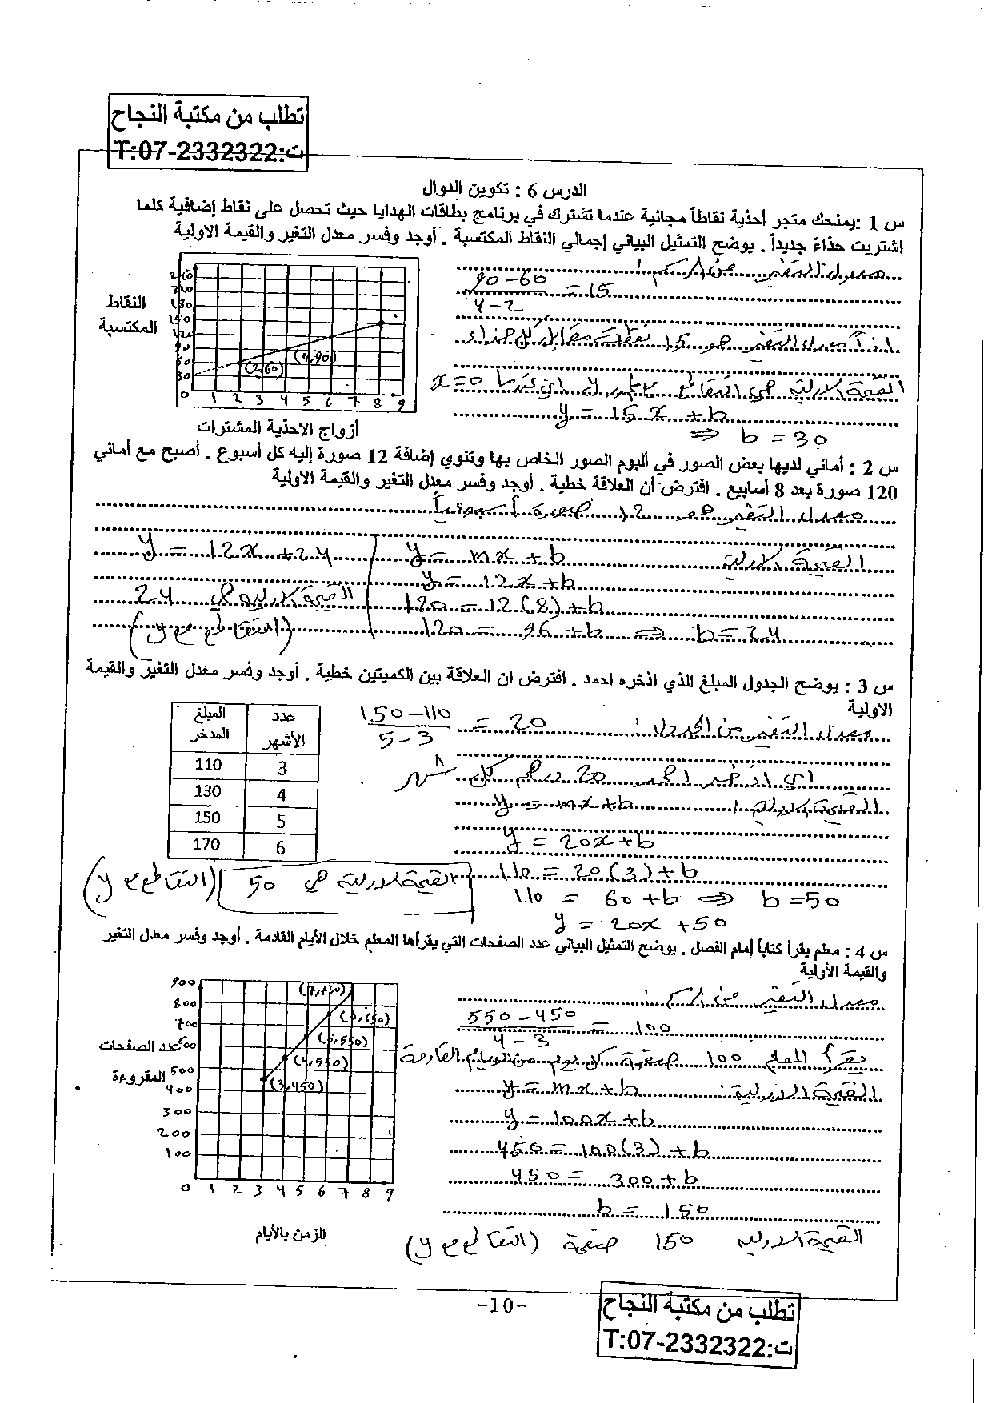 تطلب من مكتبة النجاح
ت:T:07-2332322
الدرس 6 : تكوين الدوال
س 1 :يمنحك متجر أحذية نقاطاً مجانية عندما تشترك في برنامج بطاقات الهدايا حيث تحصل على نقاط إضافية كلما
اشتريت حذاءً جديداً . يوضح التمثيل البياني إجمالي النقاط المكتسبة . أوجد وفسر معدل التغير والقيمة الاولية
معدل التغير من الرسم :
90-60 / 4-2 = 15
اذاً معدل التغير هو 15 نقطة مقابل كل حذاء
القيمة الاولية هي التقاطع مع y اي عندما x=0
y = 15x + b
⇒ b = 30
النقاط
المكتسبة
150
90
60
30
(4,90)
(2,60)
0 1 2 3 4 5 6 7 8 9
أزواج الاحذية المشتراة
س 2 : أماني لديها بعض الصور في ألبوم الصور الخاص بها وتنوي إضافة 12 صورة إليه كل أسبوع . أصبح مع أماني
120 صورة بعد 8 أسابيع . افترض أن العلاقة خطية . أوجد وفسر معدل التغير والقيمة الاولية
معدل التغير هو 12 صورة أسبوعياً
القيمة الاولية
y = mx + b
y = 12x + b
120 = 12(8) + b
120 = 96 + b ⇒ b = 24
y = 12x + 24
القيمة الاولية هي 24
(التقاطع مع y)
س 3 : يوضح الجدول المبلغ الذي ادخره احمد . افترض ان العلاقة بين الكميتين خطية . أوجد وفسر معدل التغير والقيمة
الاولية
معدل التغير من الجدول :
150-110 / 5-3 = 20
اي ادخر احمد 20 درهم كل شهر
القيمة الاولية :
y = mx + b
y = 20x + b
110 = 20(3) + b
110 = 60 + b ⇒ b = 50
y = 20x + 50
القيمة الاولية هي 50 (التقاطع مع y)
عدد الأشهر المبلغ المدخر
3 110
4 130
5 150
6 170
س 4 : معلم يقرأ كتاباً أمام الفصل . يوضح التمثيل البياني عدد الصفحات التي يقرأها المعلم خلال الأيام القادمة . أوجد وفسر معدل التغير
والقيمة الأولية
معدل التغير من الرسم :
550-450 / 4-3 = 100
يقرأ المعلم 100 صفحة كل يوم من الايام القادمة
القيمة الاولية :
y = mx + b
y = 100x + b
450 = 100(3) + b
450 = 300 + b
b = 150
القيمة الاولية 150 صفحة (التقاطع مع y)
عدد الصفحات
المقروءة
900
800
700
600
500
400
300
200
100
(4,550)
(3,450)
0 1 2 3 4 5 6 7 8 9
الزمن بالأيام
-10-
تطلب من مكتبة النجاح
ت:T:07-2332322